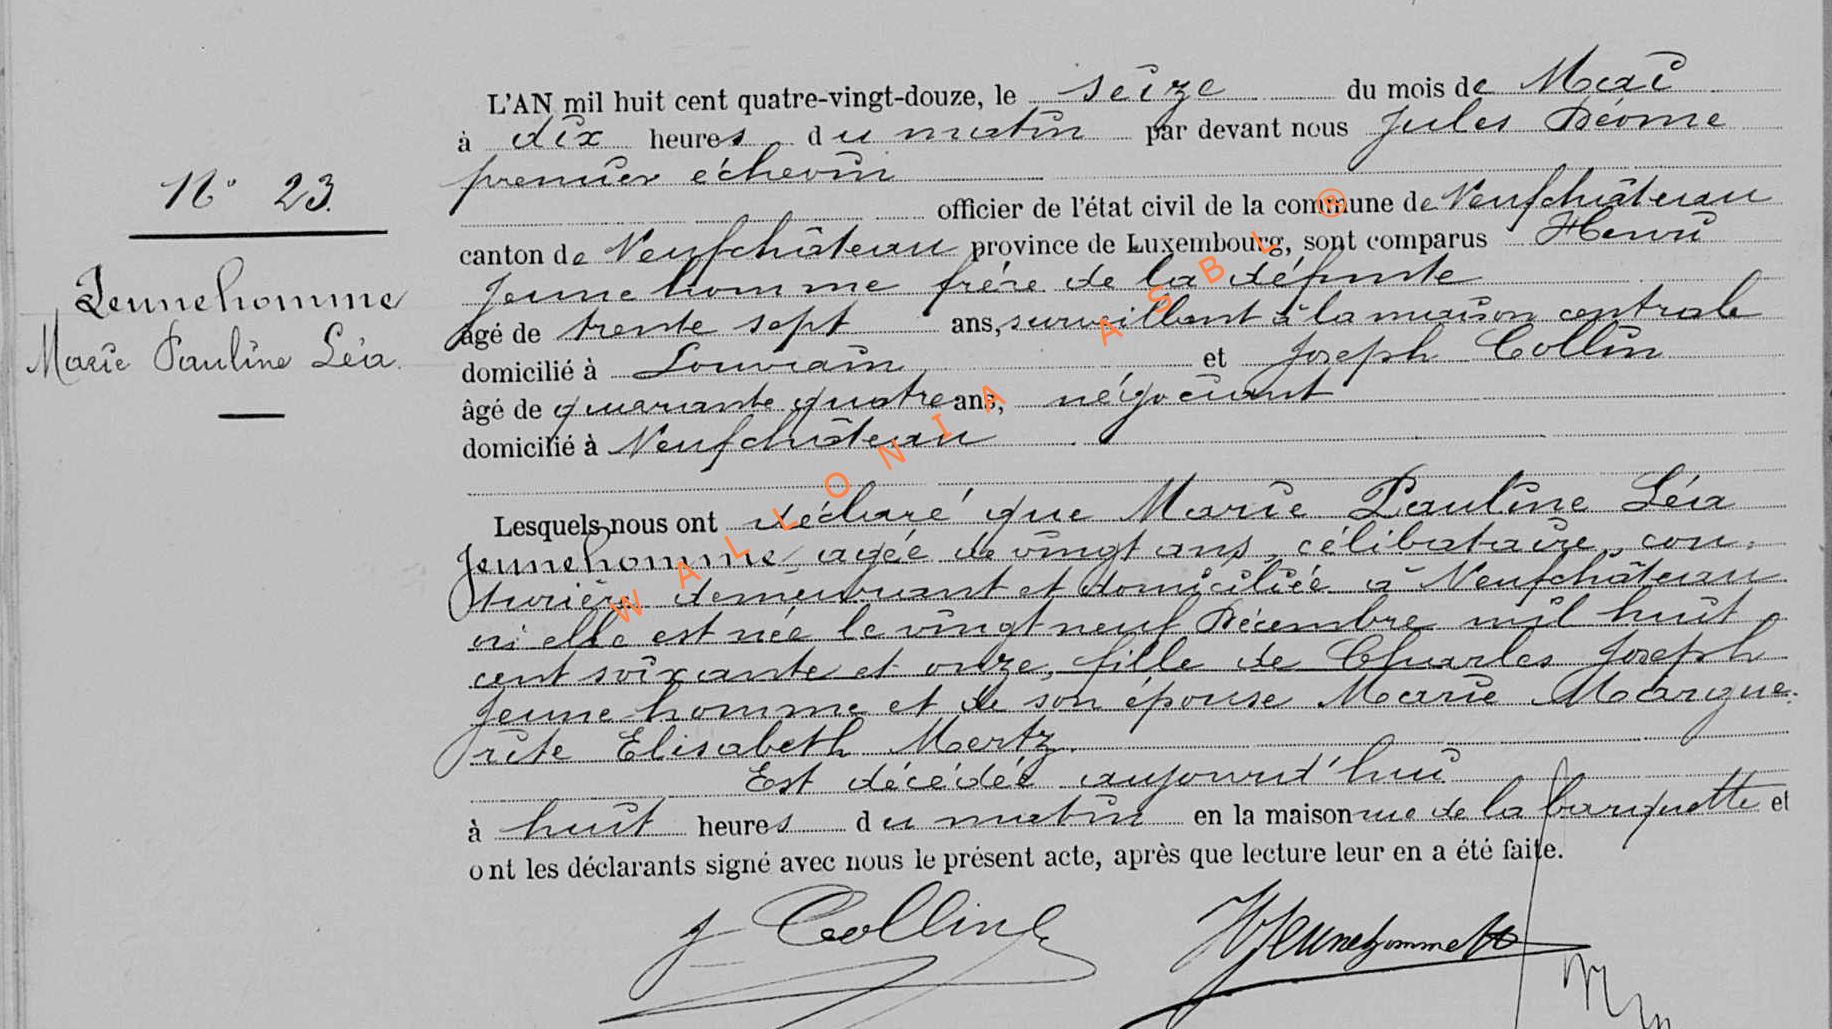 L'AN mil huit cent quatre-vingt-douze, le seize du mois de Mai
à dix heures du matin par devant nous Jules Déome
premier échevin
N° 23.
officier de l'état civil de la commune de Neufchâteau
canton de Neufchâteau province de Luxembourg, sont comparus Henri
Jeunehomme
Marie Pauline Léa.
Jeunehomme frére de la défunte
âgé de trente sept ans, surveillant à la maison centrale
domicilié à Louvain et Joseph Collin
âgé de quarante quatre ans, négociant
domicilié à Neufchâteau
Lesquels nous ont déclaré que Marie Pauline Léa
Jeunehomme, agée de vingt ans, célibataire, cou-
turière demeurant et domiciliée à Neufchâteau
où elle est née le vingt neuf Décembre mil huit
cent soixante et onze, fille de Charles Joseph
Jeunehomme et de son épouse Marie Margue-
rite Elisabeth Mertz.
Est décédée aujourd'hui
à huit heures du matin en la maison rue de la barquette et
ont les déclarants signé avec nous le présent acte, après que lecture leur en a été faite.
J Collin
HJeunehomme
WALLONIA ASBL ®